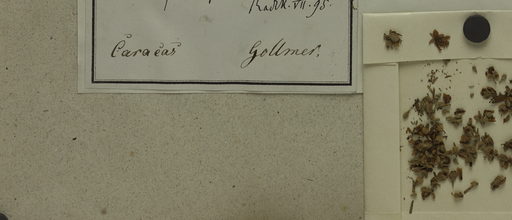 Radlk. VII. 95.
Caracas Gollmer.